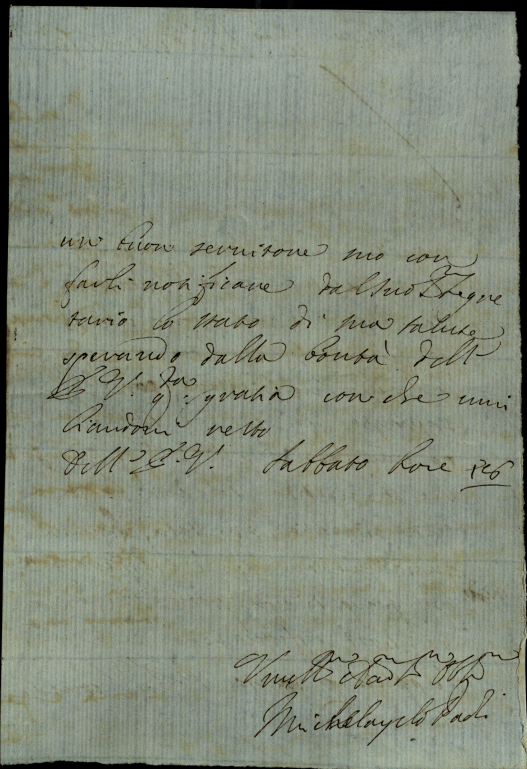 un buon servitore suo con
farli notificare dal suo Segre
tario lo stato di sua salute
sperando dalla bontà dell
E. V. q.ta gratia con che umi
liandomi resto
Dell E. V. Sabbato hore
Michelangelo Paoli